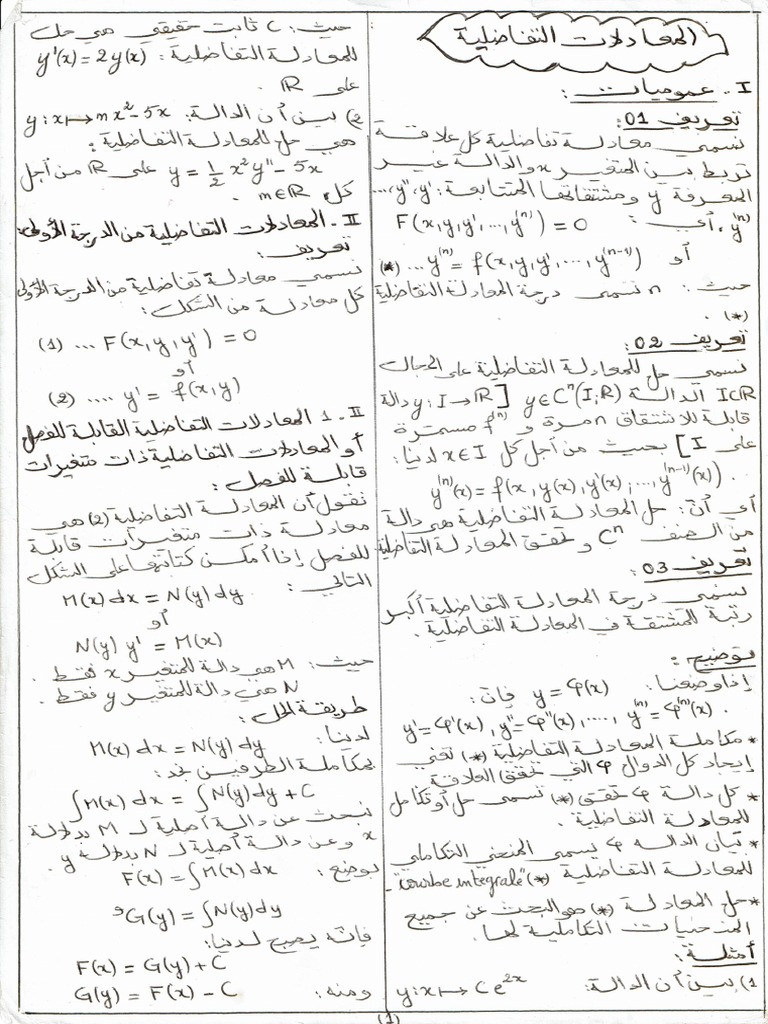 المعادلات التفاضلية
I - عموميات :
تعريف 01:
نسمي معادلة تفاضلية كل علاقة
تربط بين المتغير x والدالة غير
المعرفة y ومشتقاتها المتتابعة: y', y'', ...,
y⁽ⁿ⁾، أي : F(x, y, y', ..., y⁽ⁿ⁾) = 0
أو y⁽ⁿ⁾ = f(x, y, y', ..., y⁽ⁿ⁻¹⁾) ... (*)
حيث : n تسمى درجة المعادلة التفاضلية
(*) .
تعريف 02:
نسمي حل للمعادلة التفاضلية على المجال
I⊂ℝ الدالة y∈Cⁿ(I;ℝ) [y: I→ℝ دالة
قابلة للاشتقاق n مرة و f⁽ⁿ⁾ مستمرة
على I] بحيث من أجل كل x∈I لدينا:
y⁽ⁿ⁾(x) = f(x, y(x), y'(x), ..., y⁽ⁿ⁻¹⁾(x)) .
أي أن: حل المعادلة التفاضلية هي دالة
من الصنف Cⁿ وتحقق المعادلة التفاضلية.
تعريف 03:
نسمي درجة المعادلة التفاضلية أكبر
رتبة للمشتقة في المعادلة التفاضلية .
توضيح :
إذا وضعنا: y = φ(x) فإن:
y' = φ'(x), y'' = φ''(x), ...., y⁽ⁿ⁾ = φ⁽ⁿ⁾(x) .
* مكاملة المعادلة التفاضلية (*) تعني
إيجاد كل الدوال φ التي تحقق العلاقة
* كل دالة φ تحقق (*) تسمى حل أو تكامل
للمعادلة التفاضلية .
* بيان الدالة φ يسمى المنحني التكاملي
للمعادلة التفاضلية (*) "courbe intégrale"
* حل المعادلة (*) هو البحث عن جميع
المنحنيات التكاملية لها.
أمثلة :
1) بين أن الدالة: y: x ↦ Ce²ˣ
حيث: C ثابت حقيقي هي حل
للمعادلة التفاضلية: y'(x) = 2y(x)
على ℝ
2) بين أن الدالة: y: x ↦ mx² - 5x
هي حل للمعادلة التفاضلية :
y = 1/2 x² y'' - 5x على ℝ من أجل
كل m∈ℝ .
II - المعادلات التفاضلية من الدرجة الأولى:
تعريف:
نسمي معادلة تفاضلية من الدرجة الأولى
كل معادلة من الشكل:
(1) ... F(x, y, y') = 0
أو
(2) .... y' = f(x, y)
II - 1 المعادلات التفاضلية القابلة للفصل
أو المعادلات التفاضلية ذات متغيرات
قابلة للفصل :
نقول أن المعادلة التفاضلية (2) هي
معادلة ذات متغيرات قابلة
للفصل إذا أمكن كتابتها على الشكل
التالي : M(x) dx = N(y) dy
أو
N(y) y' = M(x)
حيث: M هي دالة للمتغير x فقط .
N هي دالة للمتغير y فقط .
طريقة الحل :
لدينا : M(x) dx = N(y) dy
بمكاملة الطرفين نجد:
∫M(x) dx = ∫N(y) dy + C
نبحث عن دالة أصلية لـ M بدلالة
x وعن دالة أصلية لـ N بدلالة y .
بوضع : F(x) = ∫M(x) dx
و G(y) = ∫N(y) dy
فإنه يصبح لدينا:
F(x) = G(y) + C
ومنه : G(y) = F(x) - C
(1)